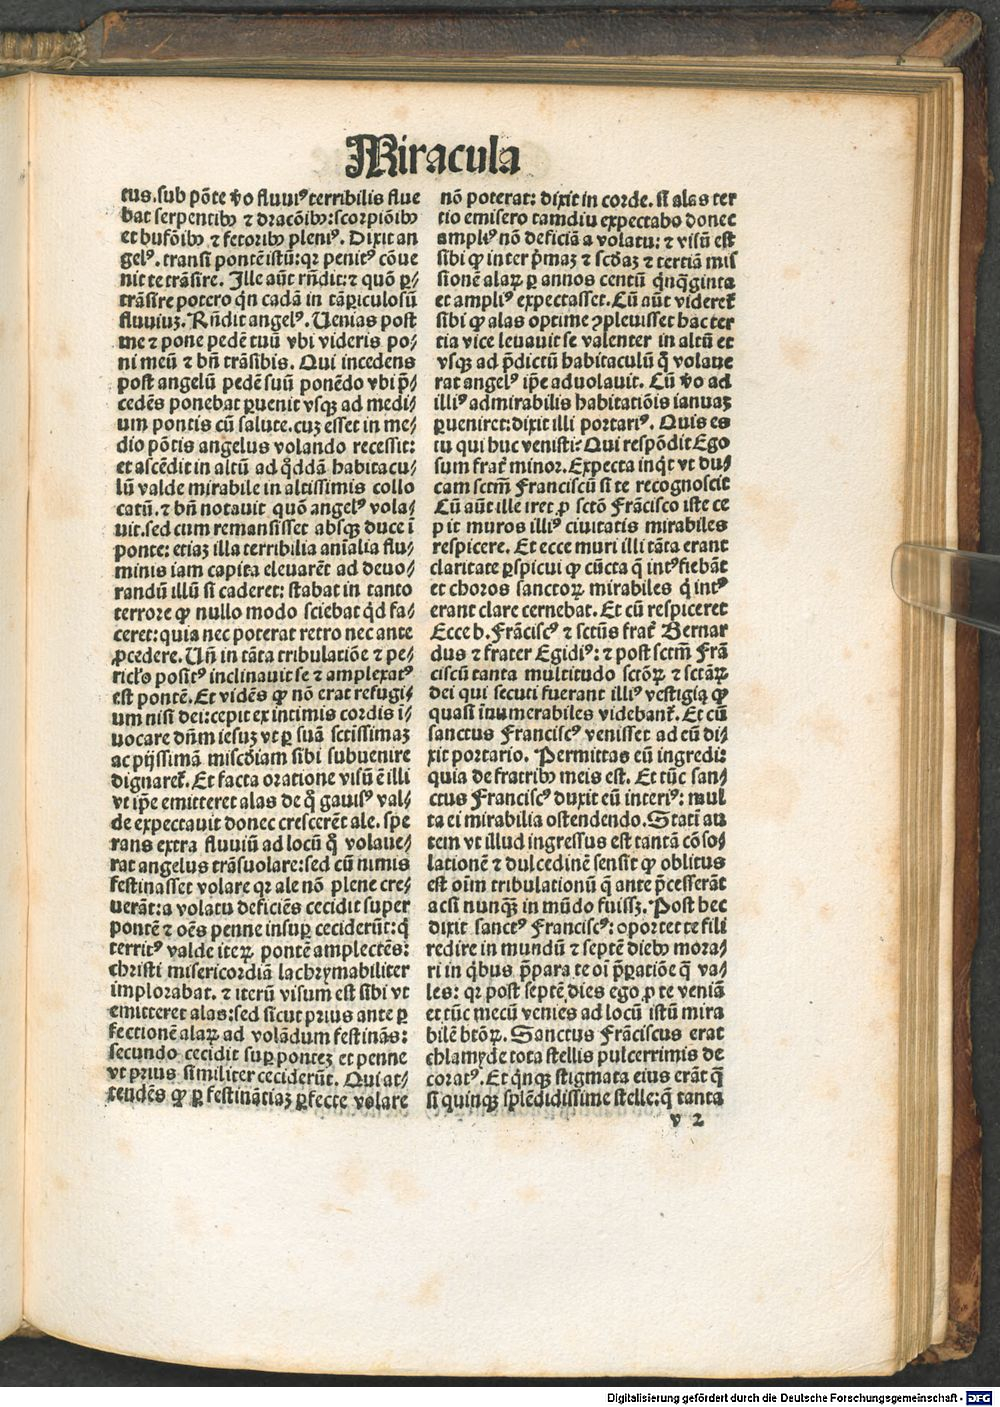 Miracula
tus.sub põte ṽo fluuiꝰ terribilis flue
bat serpentibꝫ ⁊ dracõibꝫ:scorpiõibꝫ
et bufõibꝫ ⁊ fetoribꝫ pleniꝰ. Dixit an
gelꝰ. transi pontẽ istũ: qꝛ penitꝰ cõue
nit te trãsire. Ille aũt rñdit: ⁊ quõ ꝑ-
trãsire potero qn̄ cadã in tã ꝑiculosũ
fluuiuꝫ. Rñdit angelꝰ. Uenias post
me ⁊ pone pedẽ tuũ vbi videris po-
ni meũ ⁊ bñ trãsibis. Qui incedens
post angelũ pedẽ suũ ponẽdo vbi p̃-
cedẽs ponebat ꝑuenit vsqꝫ ad medi-
um pontis cũ salute.cuꝫ esset in me-
dio põtis angelus volando recessit:
et ascẽdit in altũ ad qͦddã habitacu-
lũ valde mirabile in altissimis collo
catũ. ⁊ bñ notauit quõ angelꝰ vola-
uit.sed cum remansisset absqꝫ duce ĩ
ponte: etiaꝫ illa terribilia aĩalia flu-
minis iam capita eleuarẽt ad deuo-
randũ illũ si caderet: stabat in tanto
terrore ꝙ nullo modo sciebat qͥd fa-
ceret: quia nec poterat retro nec ante
ꝓcedere. Uñ in tãta tribulatiõe ⁊ pe-
ricľs positꝰ inclinauit se ⁊ amplexatꝰ
est pontẽ. Et vidẽs ꝙ nõ erat refugi-
um nisi dei: cepit ex intimis cordis ĩ-
uocare dñm iesuꝫ vt ꝑ suã sctissimaꝫ
ac pijssimã miscḋiam sibi subuenire
dignareť. Et facta oratione visũ ẽ illi
vt ip̃e emitteret alas de qͦ gauisꝰ val-
de expectauit donec crescerẽt ale. spe
rans extra fluuiũ ad locũ qͦ volaue-
rat angelus trãsuolare:sed cũ nimis
festinasset volare qꝛ ale nõ plene cre-
uerãt: a volatu deficiẽs cecidit super
pontẽ ⁊ oẽs penne insuꝑ ceciderũt: qͥ
territꝰ valde iteꝝ pontẽ amplectẽs:
christi misericordiã lachrymabiliter
implorabat. ⁊ iterũ visum est sibi vt
emitteret alas:sed sicut prius ante ꝑ
fectionẽ alaꝝ ad volãdum festinãs:
secundo cecidit suꝑ ponteꝫ et penne
vt prius similiter ceciderũt. Qui at-
tendẽs ꝙ ꝑ festinatiaꝫ ꝑfecte volare
nõ poterat: dixit in corde. si alas ter
tio emisero tamdiu expectabo donec
ampliꝰ nõ deficiã a volatu: ⁊ visũ est
sibi ꝙ inter p̃maꝫ ⁊ scḋaꝫ ⁊ tertiã mis
sionẽ alaꝝ ꝑ annos centũ qͥnqͣginta
et ampliꝰ expectasset. Cũ aũt videreť
sibi ꝙ alas optime ꝯpleuisset hac ter
tia vice leuauit se valenter in altũ et
vsqꝫ ad p̃dictũ habitaculũ qͦ volaue
rat angelꝰ ip̃e aduolauit. Cũ ṽo ad
illiꝰ admirabilis habitatiõis ianuaꝫ
ꝑueniret: dixit illi portariꝰ. Quis es
tu qui huc venisti? Qui respõdit Ego
sum frať minor. Expecta inqͥt vt du-
cam sctm̃ Franciscũ si te recognoscit
Cũ aũt ille iret ꝓ sctõ Frãcisco iste ce
pit muros illiꝰ ciuitatis mirabiles
respicere. Et ecce muri illi tãta erant
claritate ꝑspicui ꝙ cũcta q̃ intꝰ fiebãt
et choros sanctoꝝ mirabiles qͥ intꝰ
erant clare cernebat. Et cũ respiceret
Ecce b. Frãciscꝰ ⁊ sctũs frať Bernar
dus ⁊ frater Egidiꝰ: ⁊ post sctm̃ Frã
ciscũ tanta multitudo sctõꝝ ⁊ sctãꝝ
dei qui secuti fuerant illiꝰ vestigia ꝙ
quasi ĩnumerabiles videbanť. Et cũ
sanctus Franciscꝰ venisset ad eũ di-
xit portario. Permittas eũ ingredi:
quia de fratribꝫ meis est. Et tũc san-
ctus Franciscꝰ duxit eũ interiꝰ: mul
ta ei mirabilia ostendendo. Statĩ au
tem vt illud ingressus est tantã cõso-
lationẽ ⁊ dulcedinẽ sensit ꝙ oblitus
est oĩm tribulationũ q̃ ante p̃cesserãt
acsi nunqͣꝫ in mũdo fuissꝫ. Post hec
dixit sanctꝰ Franciscꝰ: oportet te fili
redire in mundũ ⁊ septẽ diebꝫ mora-
ri in qͥbus p̃para te oĩ p̃ꝑatiõe q̃ va-
les: qꝛ post septẽ dies ego ꝓ te veniã
et tũc mecũ venies ad locũ istũ mira
bilẽ btõꝝ. Sanctus Frãciscus erat
chlamyde tota stellis pulcerrimis de
coratꝰ. Et qͥnqꝫ stigmata eius erãt q̃
si quinqꝫ splẽdidissime stelle: q̃ tanta
v 2
Digitalisierung gefördert durch die Deutsche Forschungsgemeinschaft - DFG